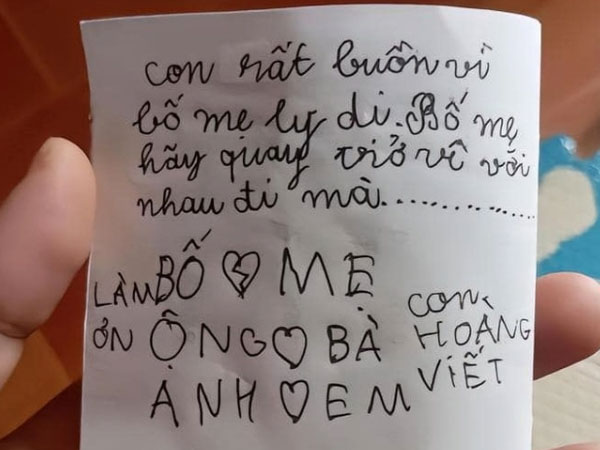 con rất buồn vì
bố mẹ ly dị. Bố mẹ
hãy quay trở về với
nhau đi mà..............
LÀM ƠN
BỐ 💔 MẸ
ÔNG ♡ BÀ
ANH ♡ EM
con HOÀNG VIẾT